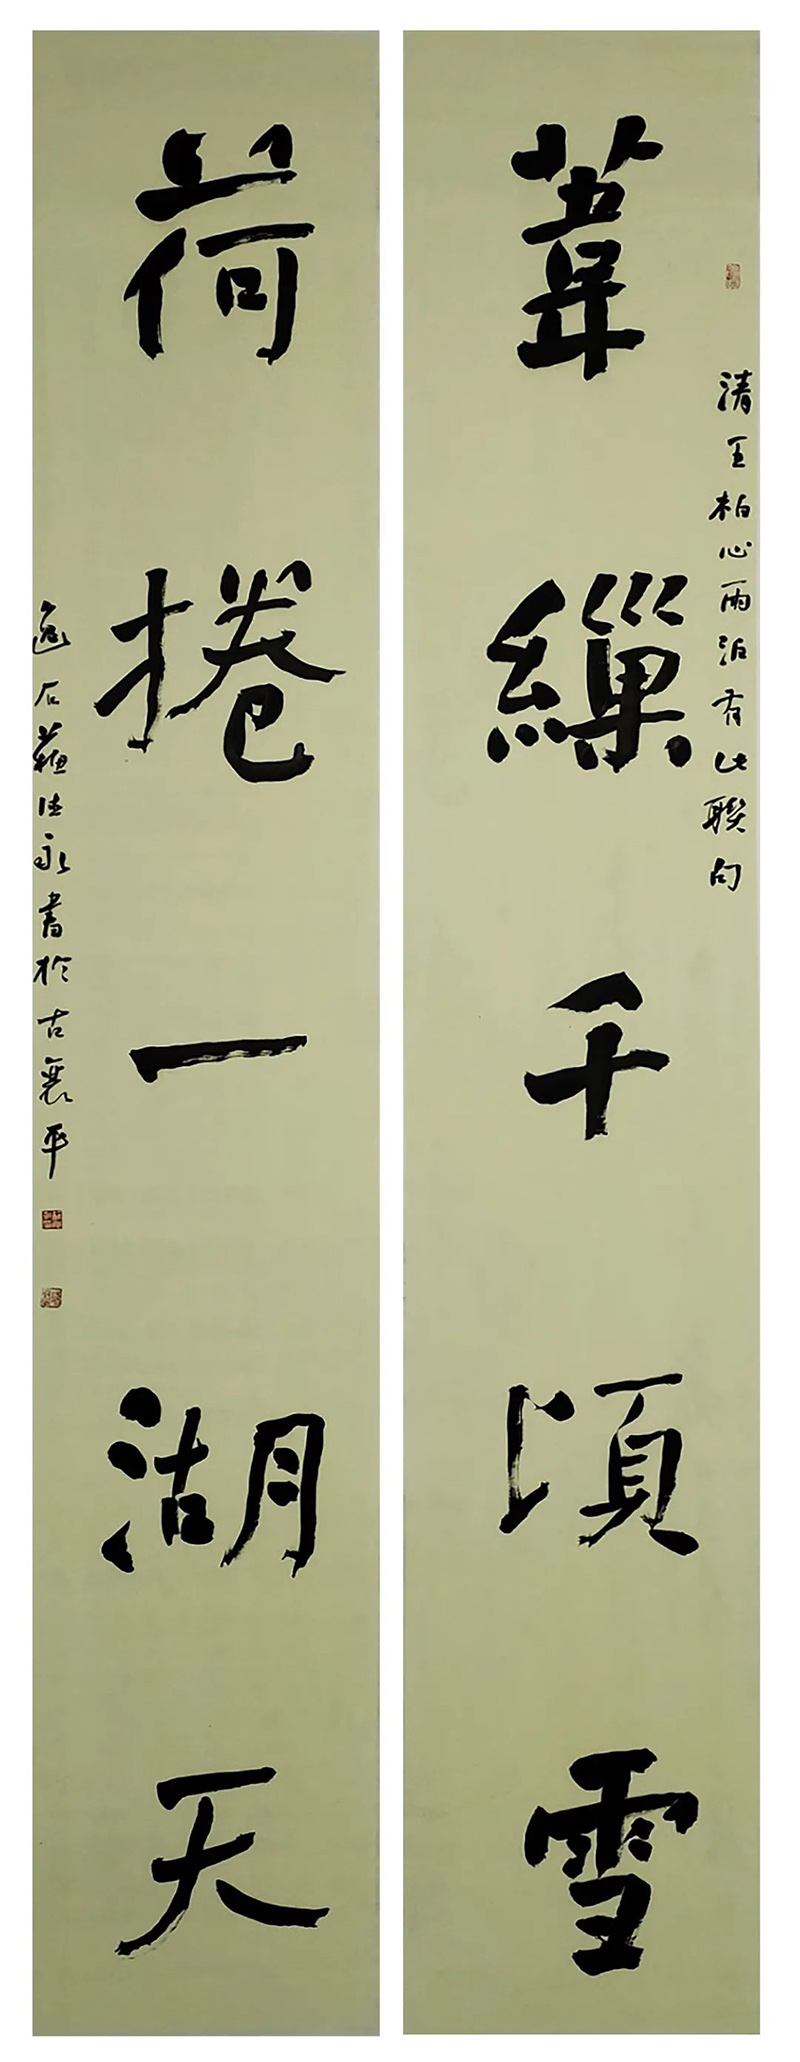 葦繅千頃雪
清王柏心雨泊有此聯句
荷捲一湖天
逸石蘇法永書於古襄平